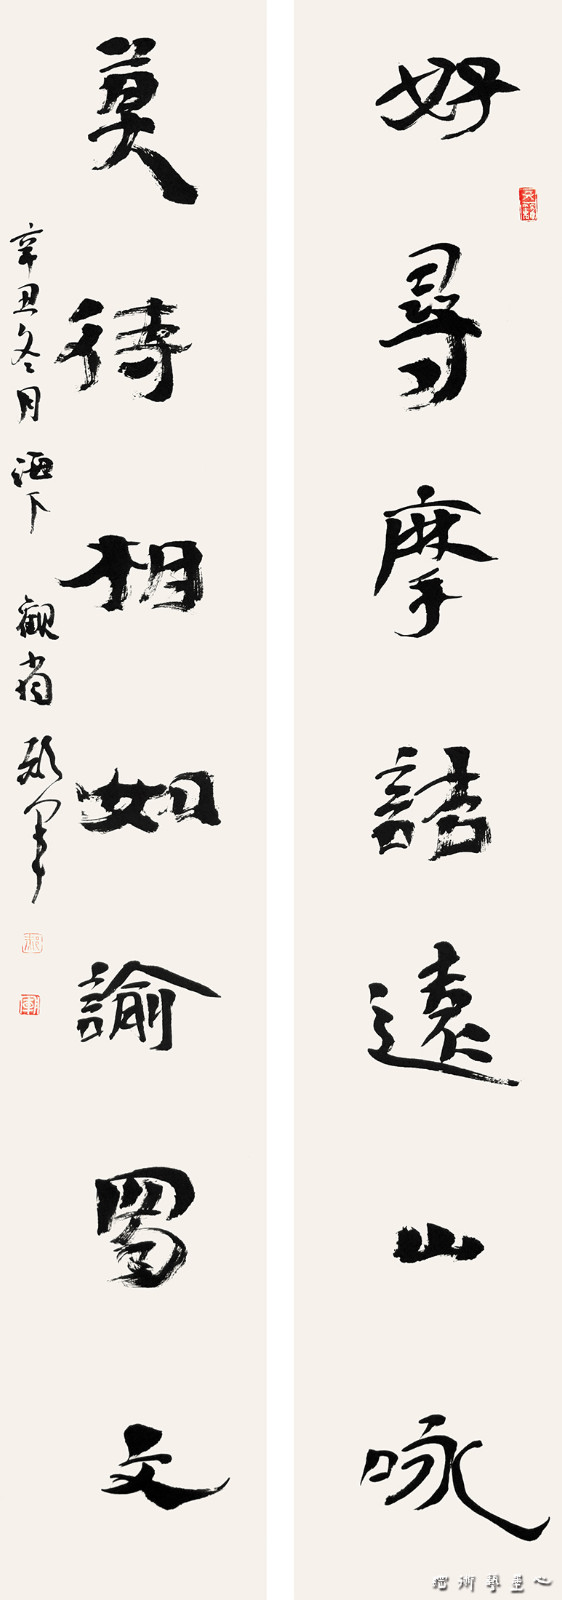 好尋摩詰遠山咏
莫待相如諭蜀文
辛丑冬月 酒下 觀者